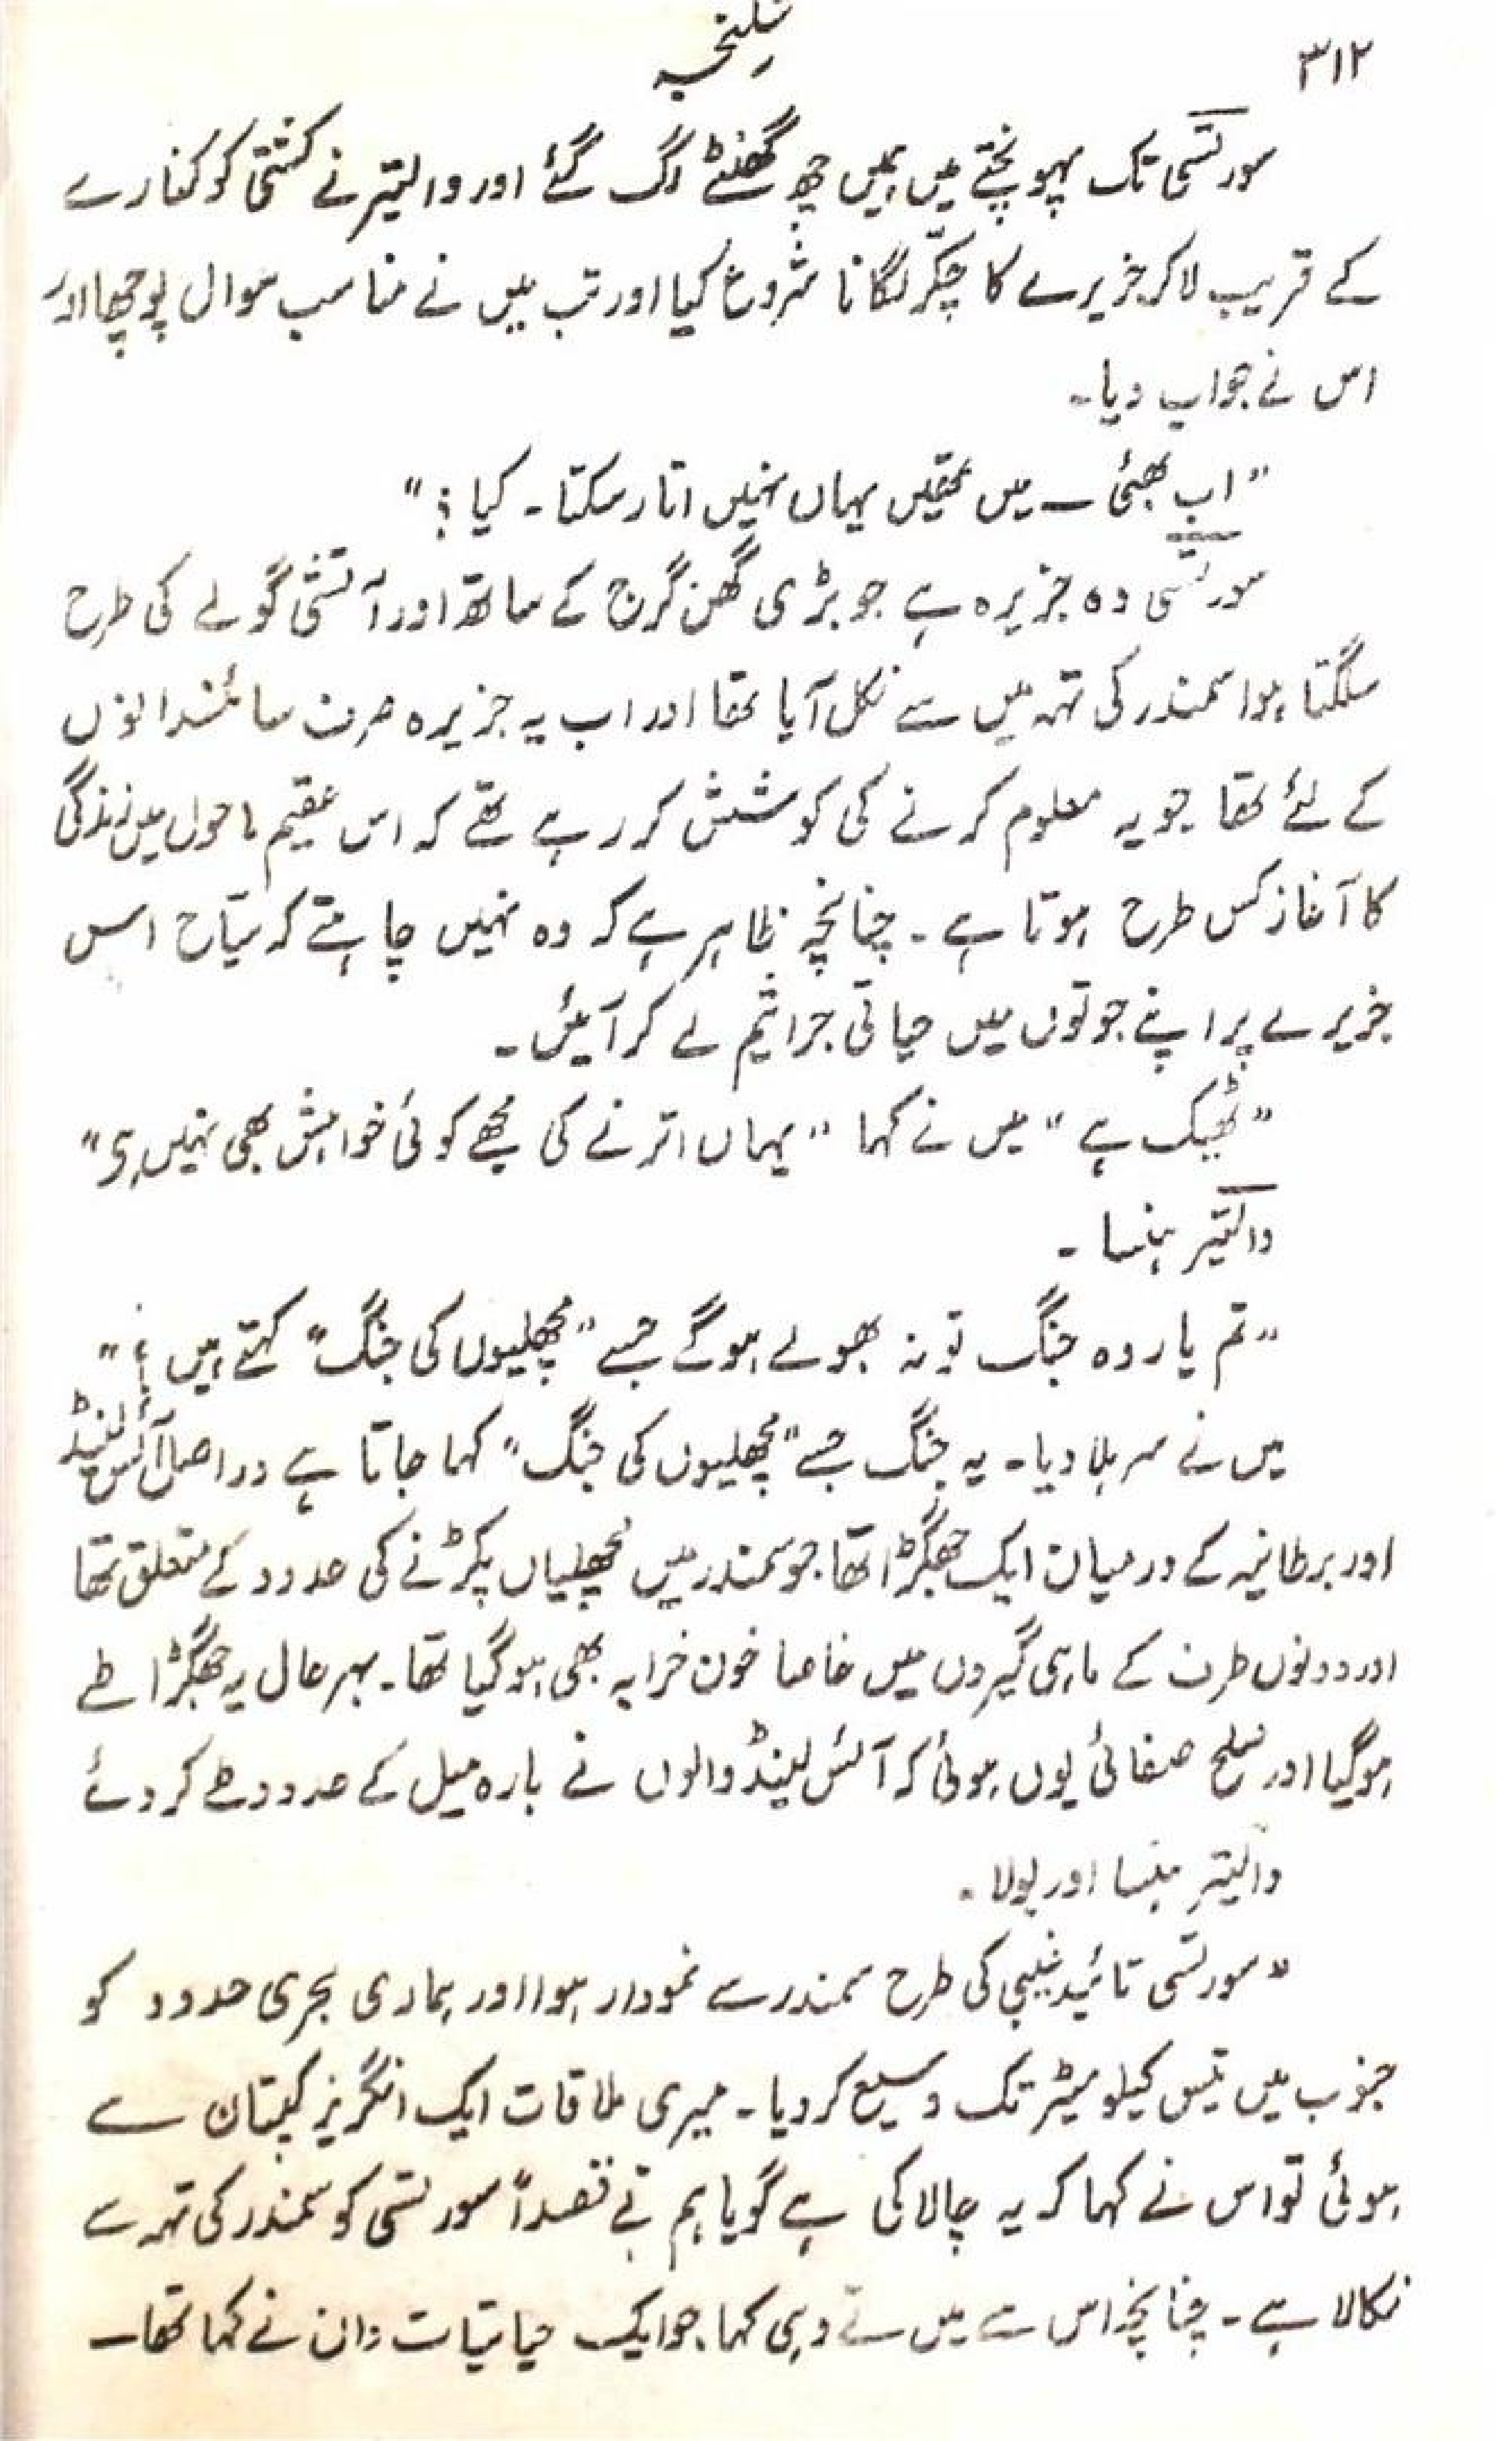 ۳۱۲
شکنجہ
سورتسی تک پہونچتے میں ہمیں چھ گھنٹے لگ گئے اور والتیر نے کشتی کو کنارے
کے قریب لاکر جزیرے کا چکّر لگانا شروع کیا اور تب میں نے مناسب سوال پوچھا اور
اس نے جواب دیا۔
"اب بھئی ـــ میں تمھیں یہاں نہیں اتار سکتا۔ کیا؟"
سورتسی وہ جزیرہ ہے جو بڑی گھن گرج کے ساتھ اور آتشی گولے کی طرح
سلگتا ہوا سمندر کی تہہ میں سے نکل آیا تھا اور اب یہ جزیرہ صرف سائنسدانوں
کے لئے تھا جو یہ معلوم کرنے کی کوشش کر رہے تھے کہ اس عقیم ماحول میں زندگی
کا آغاز کس طرح ہوتا ہے۔ چنانچہ ظاہر ہے کہ وہ نہیں چاہتے کہ سیّاح اس
جزیرے پر اپنے جوتوں میں حیاتی جراثیم لے کر آئیں۔
"ٹھیک ہے" میں نے کہا "یہاں اترنے کی مجھے کوئی خواہش بھی نہیں"
والتیر ہنسا۔
"تم یار وہ جنگ تو نہ بھولے ہوگے جسے "مچھلیوں کی جنگ" کہتے ہیں؟"
میں نے سر ہلا دیا۔ یہ جنگ جسے "مچھلیوں کی جنگ" کہا جاتا ہے دراصل آئس لینڈ
اور برطانیہ کے درمیان ایک جھگڑا تھا جو سمندر میں مچھلیاں پکڑنے کی حدود کے متعلق تھا
اور دونوں طرف کے ماہی گیروں میں خاصا خون خرابہ بھی ہوگیا تھا۔ بہرحال یہ جھگڑا طے
ہوگیا اور صلح صفائی یوں ہوئی کہ آئس لینڈ والوں نے بارہ میل کے حدود طے کردئے
والتیر ہنسا اور بولا۔
"سورتسی تائید غیبی کی طرح سمندر سے نمودار ہوا اور ہماری بحری حدود کو
جنوب میں تیس کیلومیٹر تک وسیع کردیا۔ میری ملاقات ایک انگریز کپتان سے
ہوئی تو اس نے کہا کہ یہ چالاکی ہے گویا ہم نے قصداً سورتسی کو سمندر کی تہہ سے
نکالا ہے۔ چنانچہ اس سے میں نے وہی کہا جو ایک حیاتیات دان نے کہا تھا ـــ